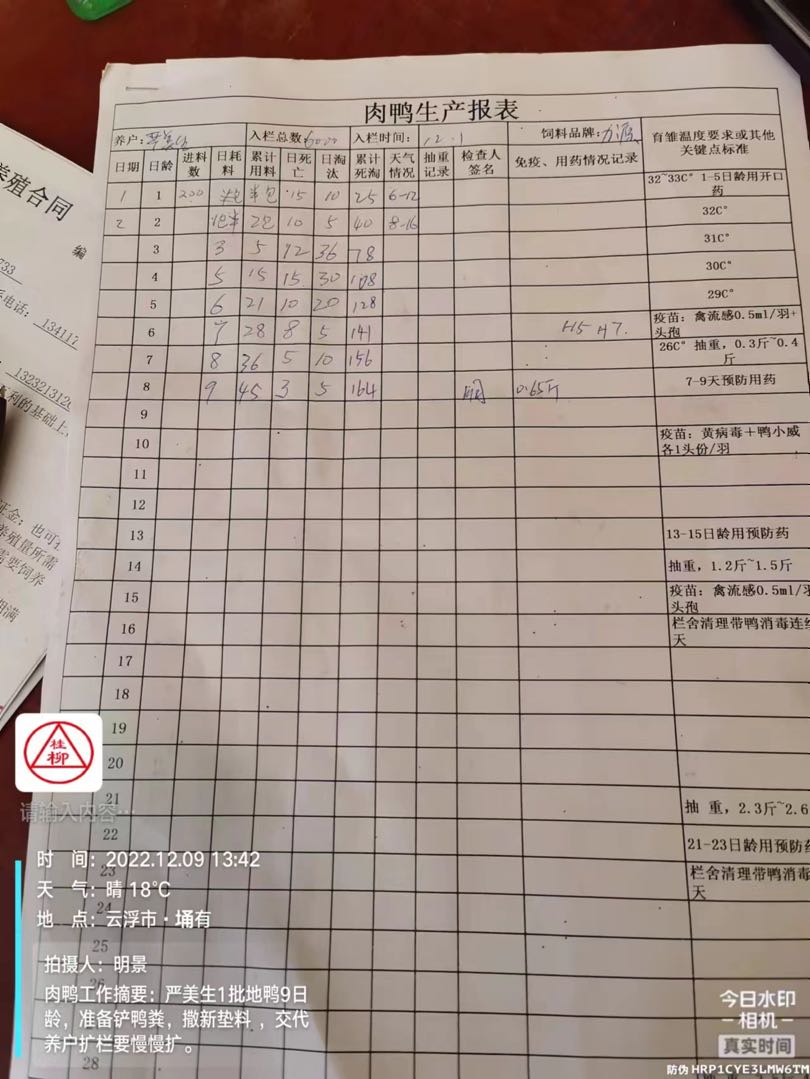 肉鸭生产报表
养户: 严美生 入栏总数: 6000 入栏时间: 12.1 饲料品牌: 力源 育雏温度要求或其他关键点标准
日期 日龄 进料数 日耗料 累计用料 日死亡 日淘汰 累计死淘 天气情况 抽重记录 检查人签名 免疫、用药情况记录
1 1 200 半包 15 10 25 6-12 32~33C° 1-5日龄用开口药
2 2 10 5 40 8-16 32C°
3 3 5 12 36 78 31C°
4 5 15 15 30 30C°
5 6 21 10 20 128 29C°
6 7 28 8 5 141 H5 H7. 疫苗: 禽流感0.5ml/羽+头孢
7 8 36 5 10 156 26C° 抽重, 0.3斤~0.4斤
8 9 45 3 5 164 明 0.65斤 7-9天预防用药
9
10 疫苗: 黄病毒+鸭小威各1头份/羽
11
12
13 13-15日龄用预防药
14 抽重, 1.2斤~1.5斤
15 疫苗: 禽流感0.5ml/羽 头孢
16 栏舍清理带鸭消毒连续 天
17
18
19
20
21 抽 重, 2.3斤~2.6
22 21-23日龄用预防药
23 栏舍清理带鸭消毒 天
24
25
26
28
养殖合同
编
733
系电话: 134117
1323213120
利的基础上,
证金; 也可
养殖量所需
需要饲养
期满
桂柳
请输入内容…
时 间: 2022.12.09 13:42
天 气: 晴 18℃
地 点: 云浮市·埇有
拍摄人: 明景
肉鸭工作摘要: 严美生1批地鸭9日
龄, 准备铲鸭粪, 撒新垫料 , 交代
养户扩栏要慢慢扩。
今日水印
相机
真实时间
防伪 HRP1CYE3LMW6TM